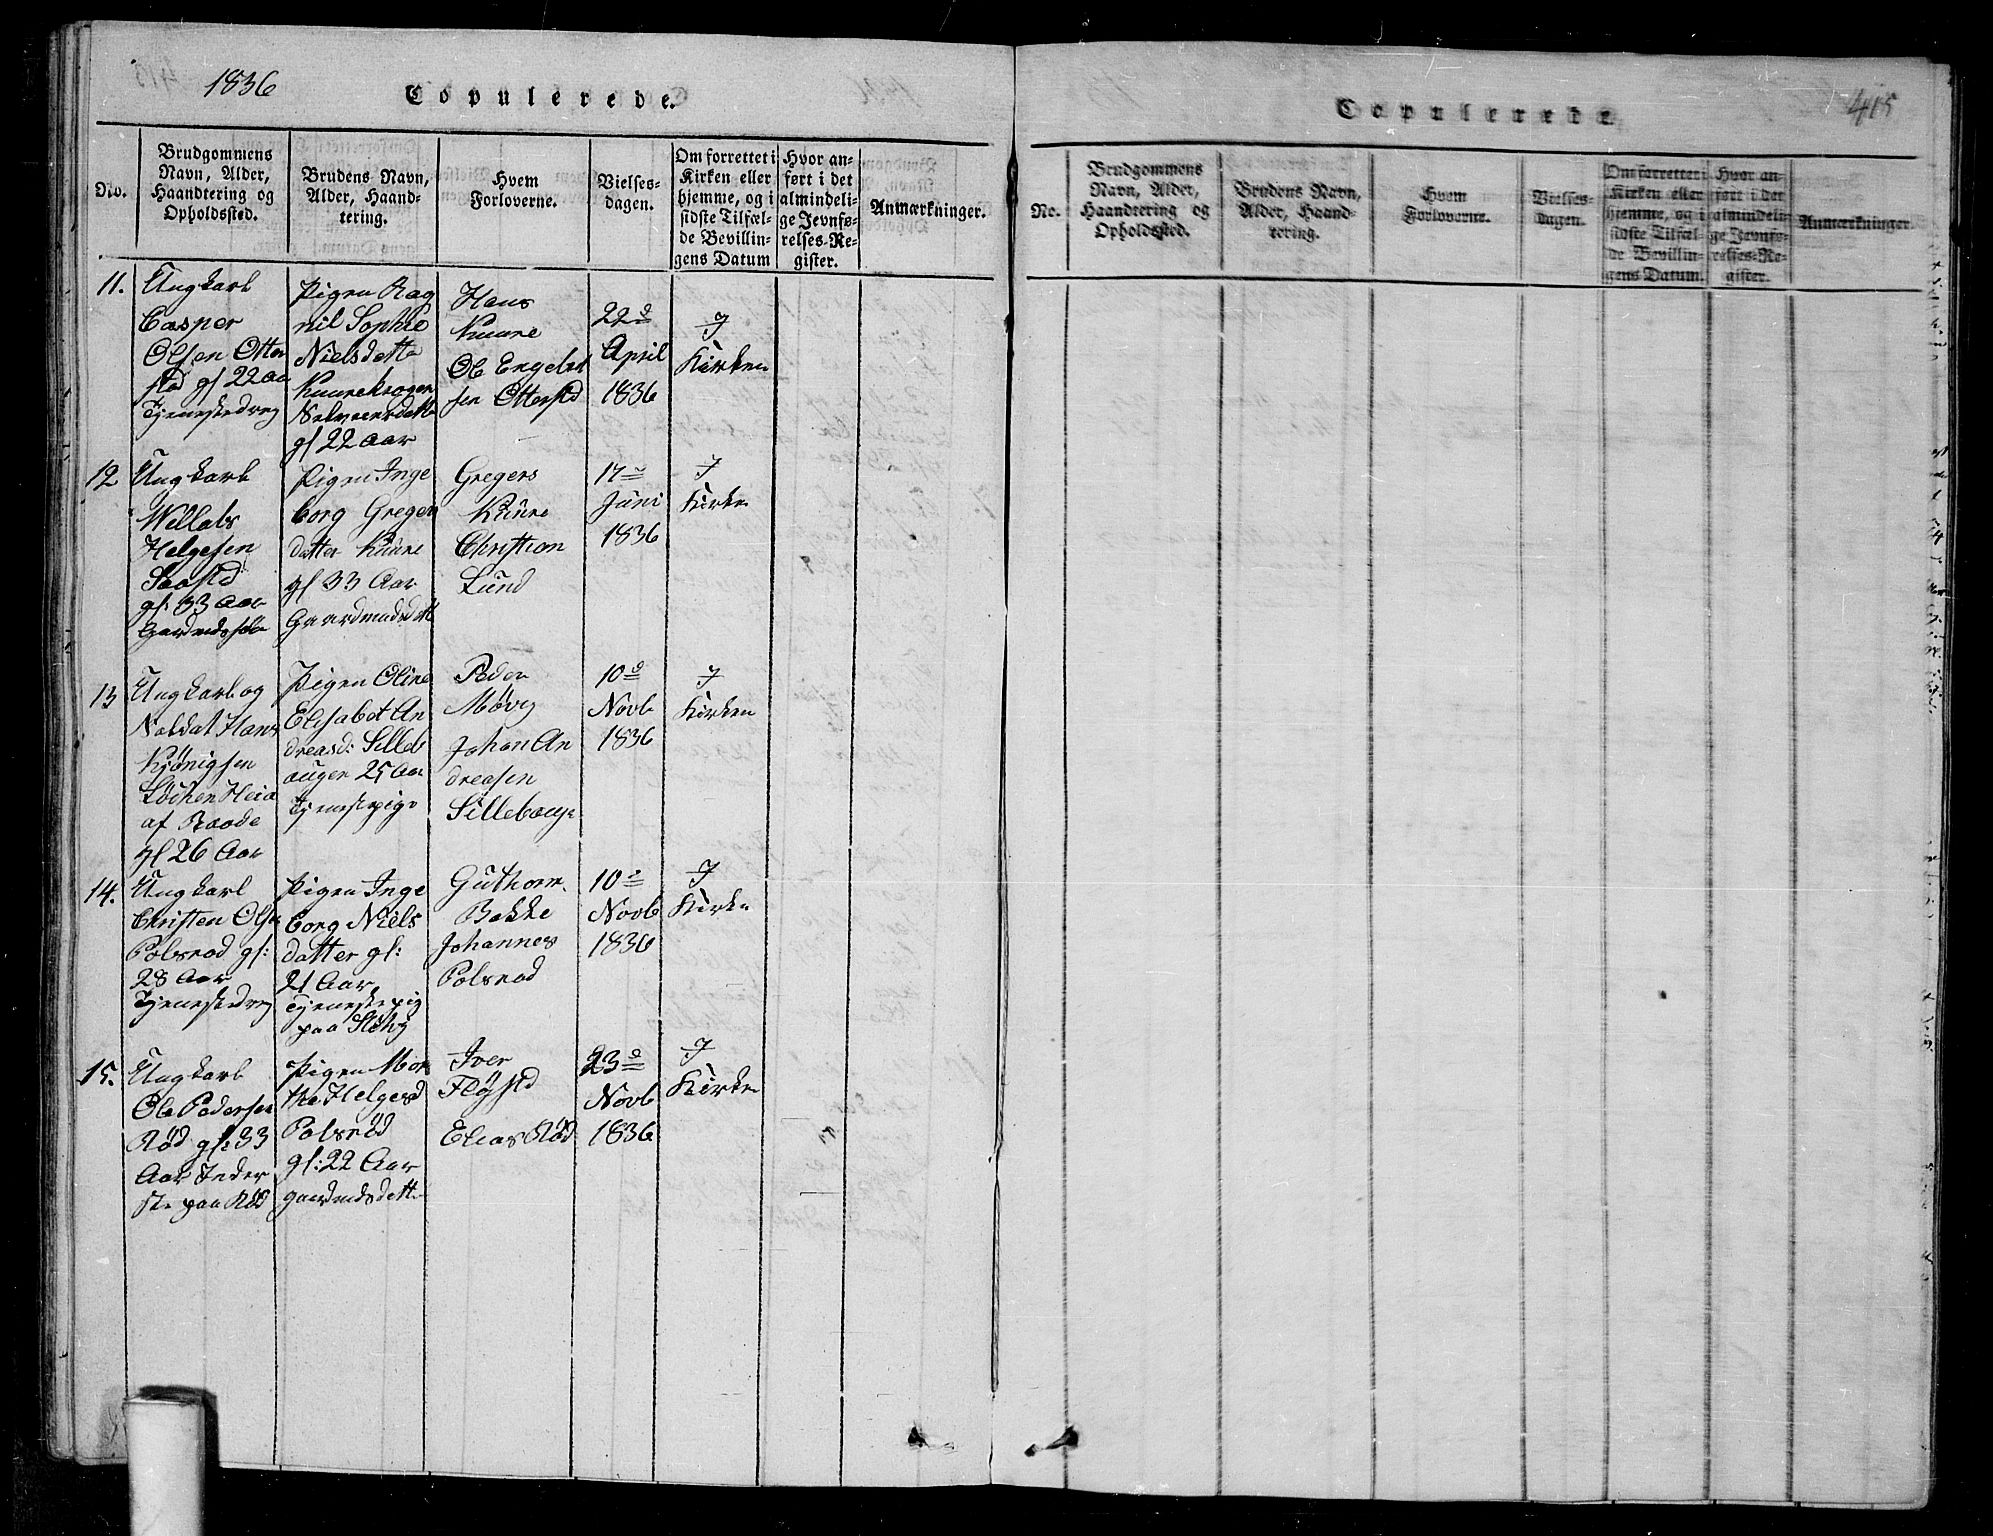 1836
Copulerede.
No.
Brudgommens
Navn, Alder,
Haandtering og
Opholdssted.
Brudens Navn,
Alder, Haand-
tering.
Hvem
Forloverne.
Vielses-
dagen.
Om forrettet i
Kirken eller
hjemme, og i
sidste Tilfæl-
de Bevillin-
gens Datum
Hvor an-
ført i det
almindeli-
ge Jevnfø-
relses-Re-
gister.
Anmærkninger.
11.
Ungkarl
Casper
Olsen Otter
stad gl 22 aa
Tjenestedreng
Pigen Rag
nil Sophie
Nielsdatte
gl 22 Aar
Hans
Kuure
Ole Engebret
sen Otterstd
22d
April
1836
I
Kirken
12
Ungkarl
Helgesen
gl: 33 Aar
Pigen Inge
borg Greger
datter Kuure
gl 33 Aar
Gaardmandsdatt
Gregers
Kuure
Christian
Lund
17de
Juni
1836
I
Kirken
13
Ungkarl og
Soldat Hans
Kjönigsen
Löchen Heia
af Raade
gl 26 Aar
Pigen Oline
Elisabet An
dreasd: Silleb
augen 25 Aar
Tjenestepige
Peder
Møvig
Johan An
dreasen
Sillebauge
10d
Novb
1836
I
Kirken
14.
Ungkarl
Christen Olsen
Polsrod gl:
28 Aar
Tjenestedreng
Pigen Inge
borg Niels
datter gl:
21 Aar
Tjenestepig
paa
Guthorm
Bakke
Johannes
Polsrod
10de
Novb
1836
I
Kirken
15.
Ungkarl
Ole Pedersen
Rød gl: 33
Aar Inder
ste paa Rød
Pigen Mar
the Helgesd
Polsrød
gl: 22 Aar
gaardmdsdatt
Iver
Fløystd
Elias Rød
23d
Novb
1836
I
Kirken
415
Copulerede.
No.
Brudgommens
Navn, Alder,
Haandtering og
Opholdssted.
Brudens Navn,
Alder, Haand-
tering.
Hvem
Forloverne.
Vielses-
dagen.
Om forrettet i
Kirken eller
hjemme, og i
sidste Tilfæl-
de Bevillin-
gens Datum.
Hvor an-
ført i det
almindeli-
ge Jevnfø-
relses-Re-
gister.
Anmærkninger.